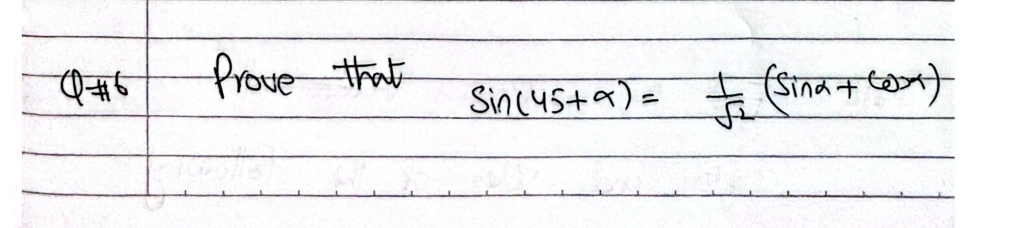 Q#6 Prove that
Sin(45+α) = 1/√2 (Sinα + Cosα)